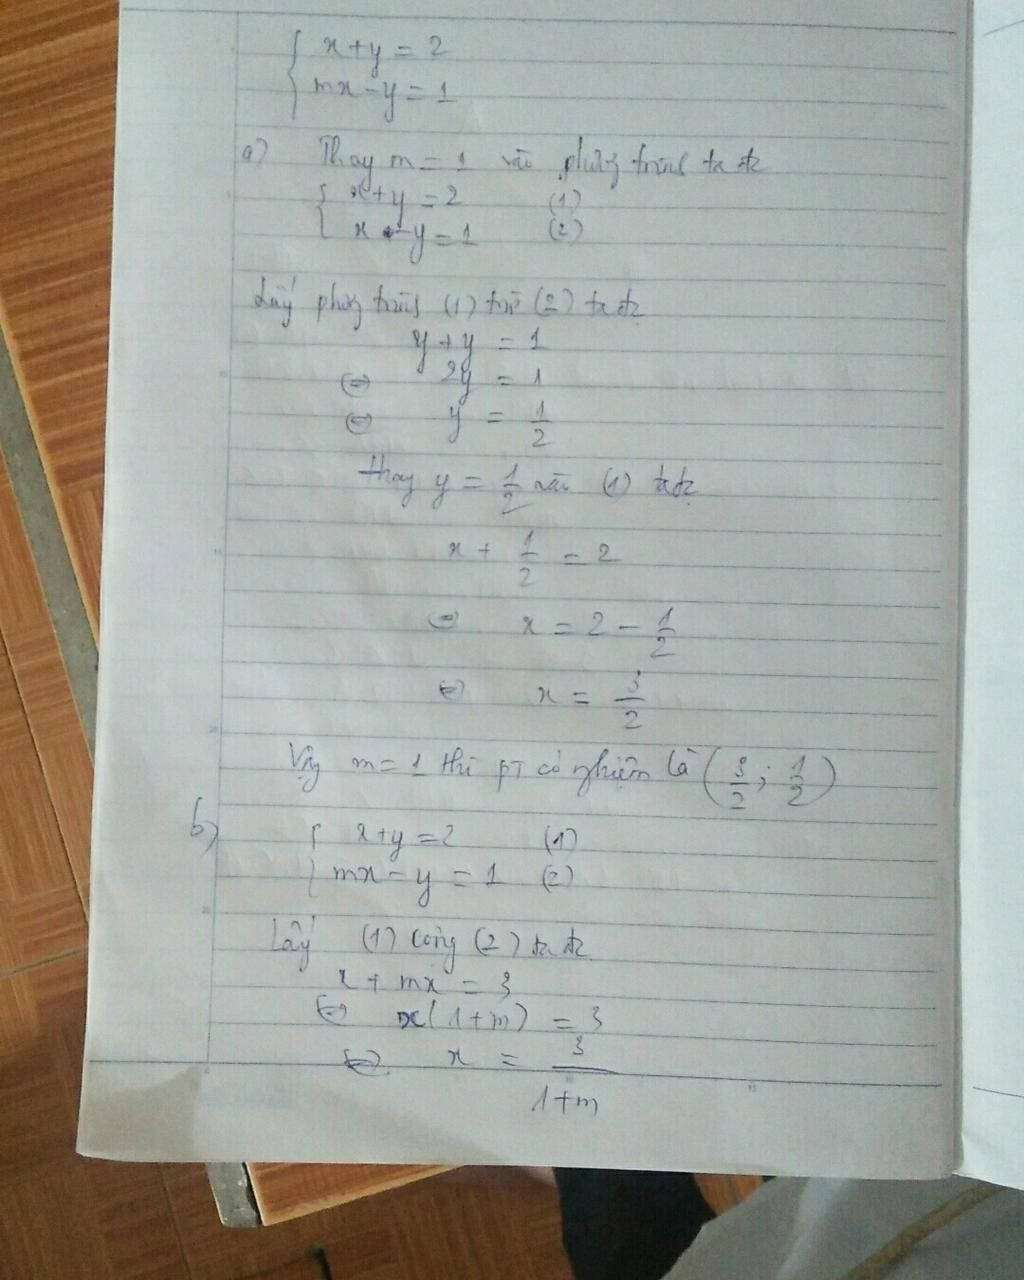 x+y = 2
mx-y = 1
a) Thay m = 1 vào phương trình ta đc
x+y = 2 (1)
x - y = 1 (2)
Lấy phương trình (1) trừ (2) ta đc
y + y = 1
⇔ 2y = 1
⇔ y = 1/2
thay y = 1/2 vào (1) ta đc
x + 1/2 = 2
⇔ x = 2 - 1/2
⇔ x = 3/2
Vậy m = 1 thì PT có nghiệm là (3/2; 1/2)
b)
x+y = 2 (1)
mx - y = 1 (2)
Lấy (1) cộng (2) ta đc
x + mx = 3
⇔ x(1+m) = 3
⇔ x = 3/(1+m)